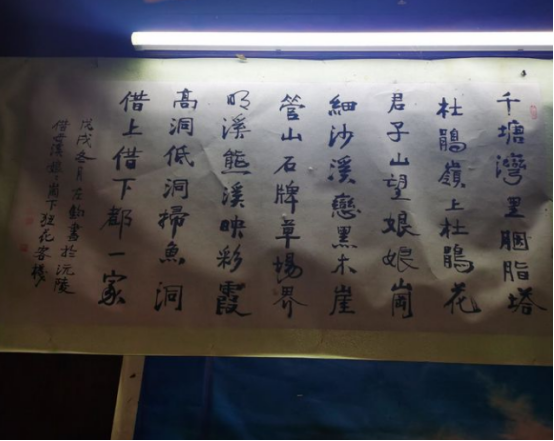 千塘灣里胭脂塔
杜鵑嶺上杜鵑花
君子山望娘娘崗
細沙溪戀黑木崖
管山石牌草場界
明溪熊溪映彩霞
高洞低洞掃魚洞
借上借下都一家
戊戌冬月左書於沅陵
借母溪娘崗下狃花客棧